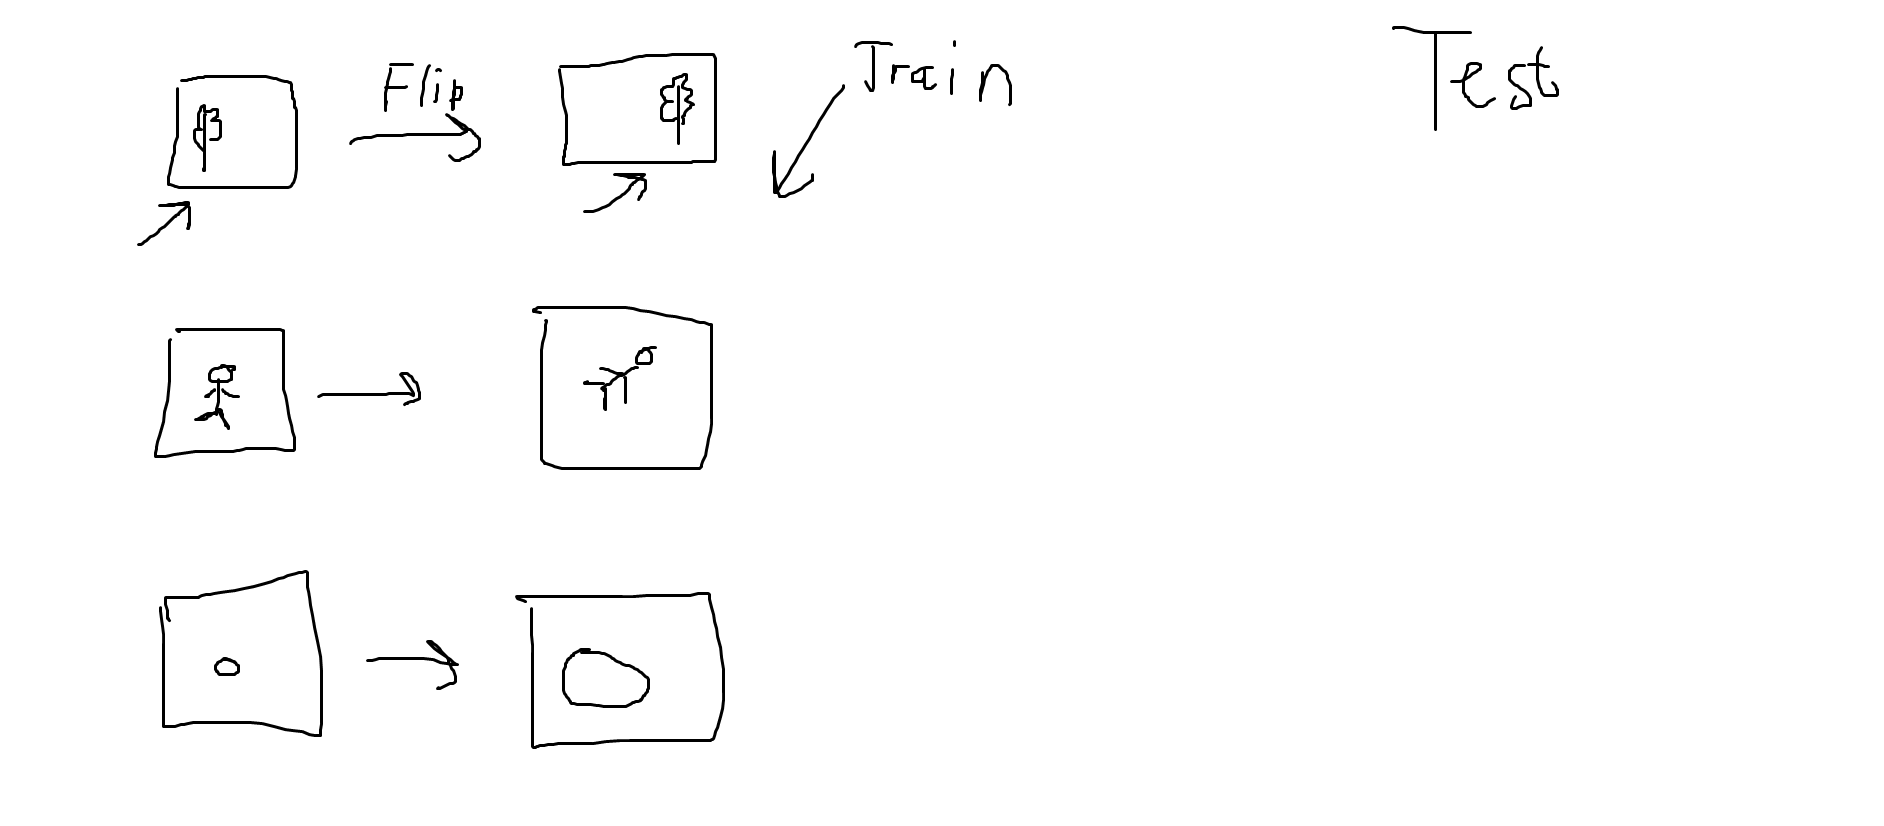 Flip
Train
Test